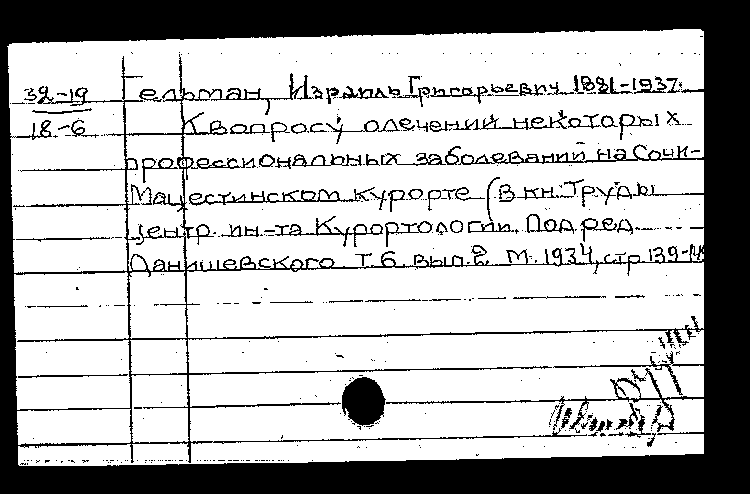 32-19
18-6
Гельман, Израиль Григорьевич 1881-1937.
К вопросу о лечении некоторых
профессиональных заболеваний на Сочи-
Мацестинском курорте (В кн: Труды
центр. ин-та Курортологии. Под ред.
Данишевского Т. 6. вып. 2. М. 1934, стр 139-